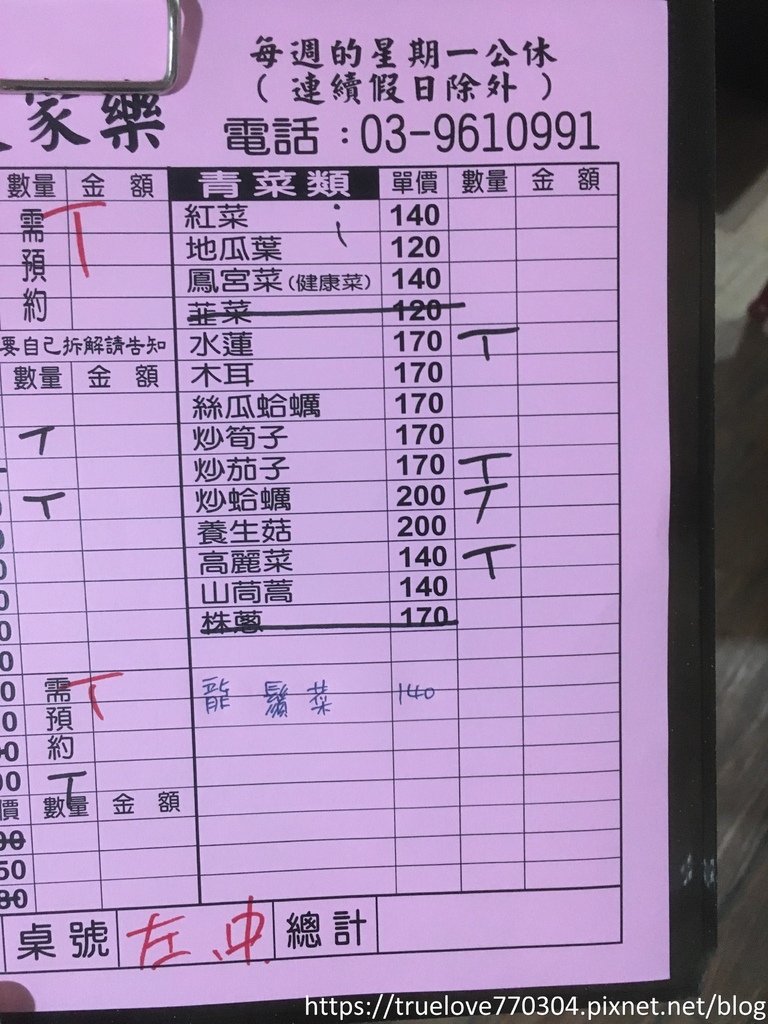 每週的星期一公休
( 連續假日除外 )
家樂
電話：03-9610991
數量 金 額 青菜類 單價 數量 金 額
需 T 紅菜 140
地瓜葉 120
預 鳳宮菜(健康菜) 140
約 韮菜 120
要自己拆解請告知 水蓮 170 T
數量 金 額 木耳 170
絲瓜蛤蠣 170
T 炒筍子 170
炒茄子 170 T
T 炒蛤蠣 200 T
0 養生菇 200
0 高麗菜 140 T
0 山茼蒿 140
0 株蔥 170
0
0 需 T 龍鬚菜 140
0 預
00 約
00 T
價 數量 金 額
00
50
80
桌號 左 中 總計
https://truelove770304.pixnet.net/blog